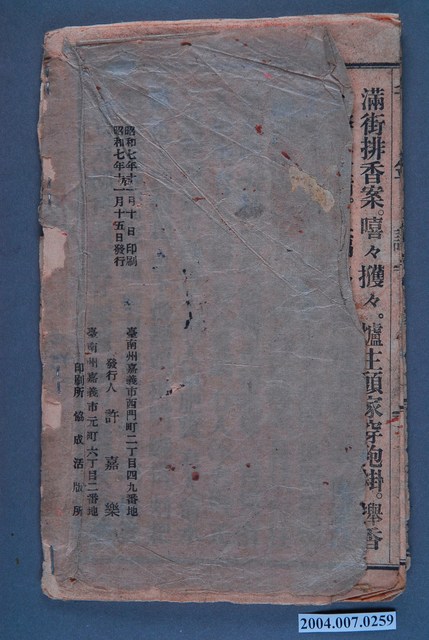 滿街排香案。嘻々擭々。爐主頭家穿袍掛。舉香
昭和七年十一月十日印刷
昭和七年十一月十五日發行
臺南州嘉義市西門町二丁目四九番地
發行人 許嘉樂
臺南州嘉義市元町六丁目二番地
印刷所 協成活版所
2004.007.0259